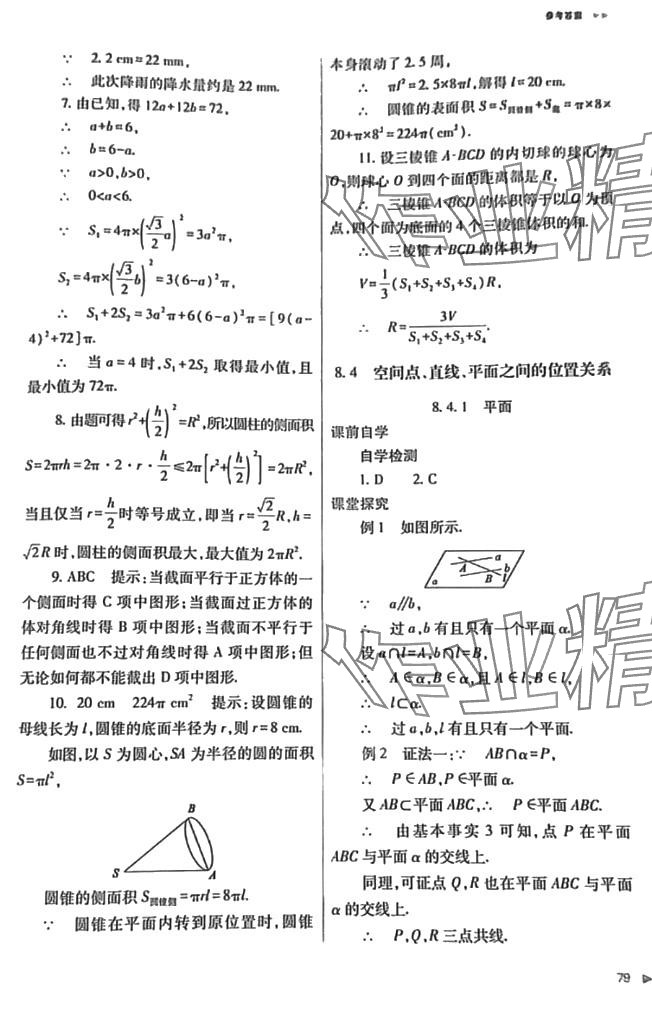 参考答案
∵ 2.2 cm=22 mm,
∴ 此次降雨的降水量约是 22 mm.
7. 由已知,得 12a+12b=72,
∴ a+b=6,
∴ b=6-a.
∵ a>0,b>0,
∴ 0<a<6.
∵ S₁=4π×(√3/2 a)²=3a²π,
S₂=4π×(√3/2 b)²=3(6-a)²π,
∴ S₁+2S₂=3a²π+6(6-a)²π=[9(a-
4)²+72]π.
∴ 当 a=4 时,S₁+2S₂ 取得最小值,且
最小值为 72π.
8. 由题可得 r²+(h/2)²=R²,所以圆柱的侧面积
S=2πrh=2π·2·r·h/2≤2π[r²+(h/2)²]=2πR²,
当且仅当 r=h/2时等号成立,即当 r=√2/2 R,h=
√2R 时,圆柱的侧面积最大,最大值为 2πR².
9. ABC 提示:当截面平行于正方体的一
个侧面时得 C 项中图形;当截面过正方体的
体对角线时得 B 项中图形;当截面不平行于
任何侧面也不过对角线时得 A 项中图形;但
无论如何都不能截出 D 项中图形.
10. 20 cm 224π cm² 提示:设圆锥的
母线长为 l,圆锥的底面半径为 r,则 r=8 cm.
如图,以 S 为圆心,SA 为半径的圆的面积
S=πl²,
B
S
A
圆锥的侧面积 S圆锥侧=πrl=8πl.
∵ 圆锥在平面内转到原位置时,圆锥
本身滚动了 2.5 周,
∴ πl²=2.5×8πl,解得 l=20 cm.
∴ 圆锥的表面积 S=S圆锥侧+S底=π×8×
20+π×8²=224π(cm²).
11. 设三棱锥 A-BCD 的内切球的球心为
O,则球心 O 到四个面的距离都是 R,
∴ 三棱锥 A-BCD 的体积等于以 O 为顶
点,四个面为底面的 4 个三棱锥体积的和.
∴ 三棱锥 A-BCD 的体积为
V=1/3(S₁+S₂+S₃+S₄)R,
∴ R=3V/(S₁+S₂+S₃+S₄).
8.4 空间点、直线、平面之间的位置关系
8.4.1 平面
课前自学
自学检测
1. D 2. C
课堂探究
例 1 如图所示.
a
A
b
B
l
α
∵ a∥b,
∴ 过 a,b 有且只有一个平面 α.
设 a∩l=A,b∩l=B,
∴ A∈α,B∈α,且 A∈l,B∈l,
∴ l⊂α.
∴ 过 a,b,l 有且只有一个平面.
例 2 证法一:∵ AB∩α=P,
∴ P∈AB,P∈平面 α.
又 AB⊂平面 ABC,∴ P∈平面 ABC.
∴ 由基本事实 3 可知,点 P 在平面
ABC 与平面 α 的交线上.
同理,可证点 Q,R 也在平面 ABC 与平面
α 的交线上.
∴ P,Q,R 三点共线.
79
作业精
作业精